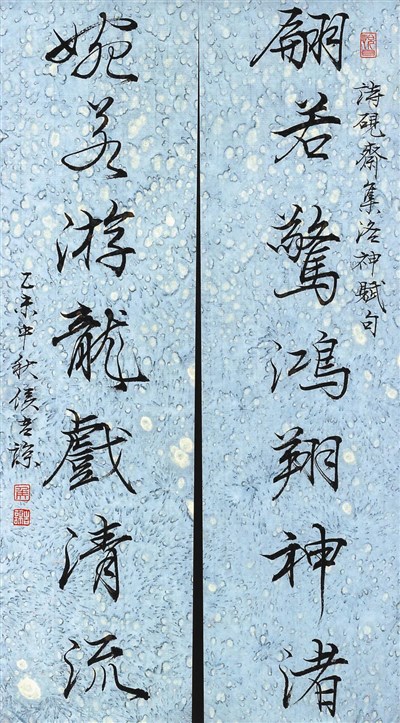 詩硯齋集洛神賦句
翩若驚鴻翔神渚
婉若游龍戲清流
乙未中秋侯吉諒